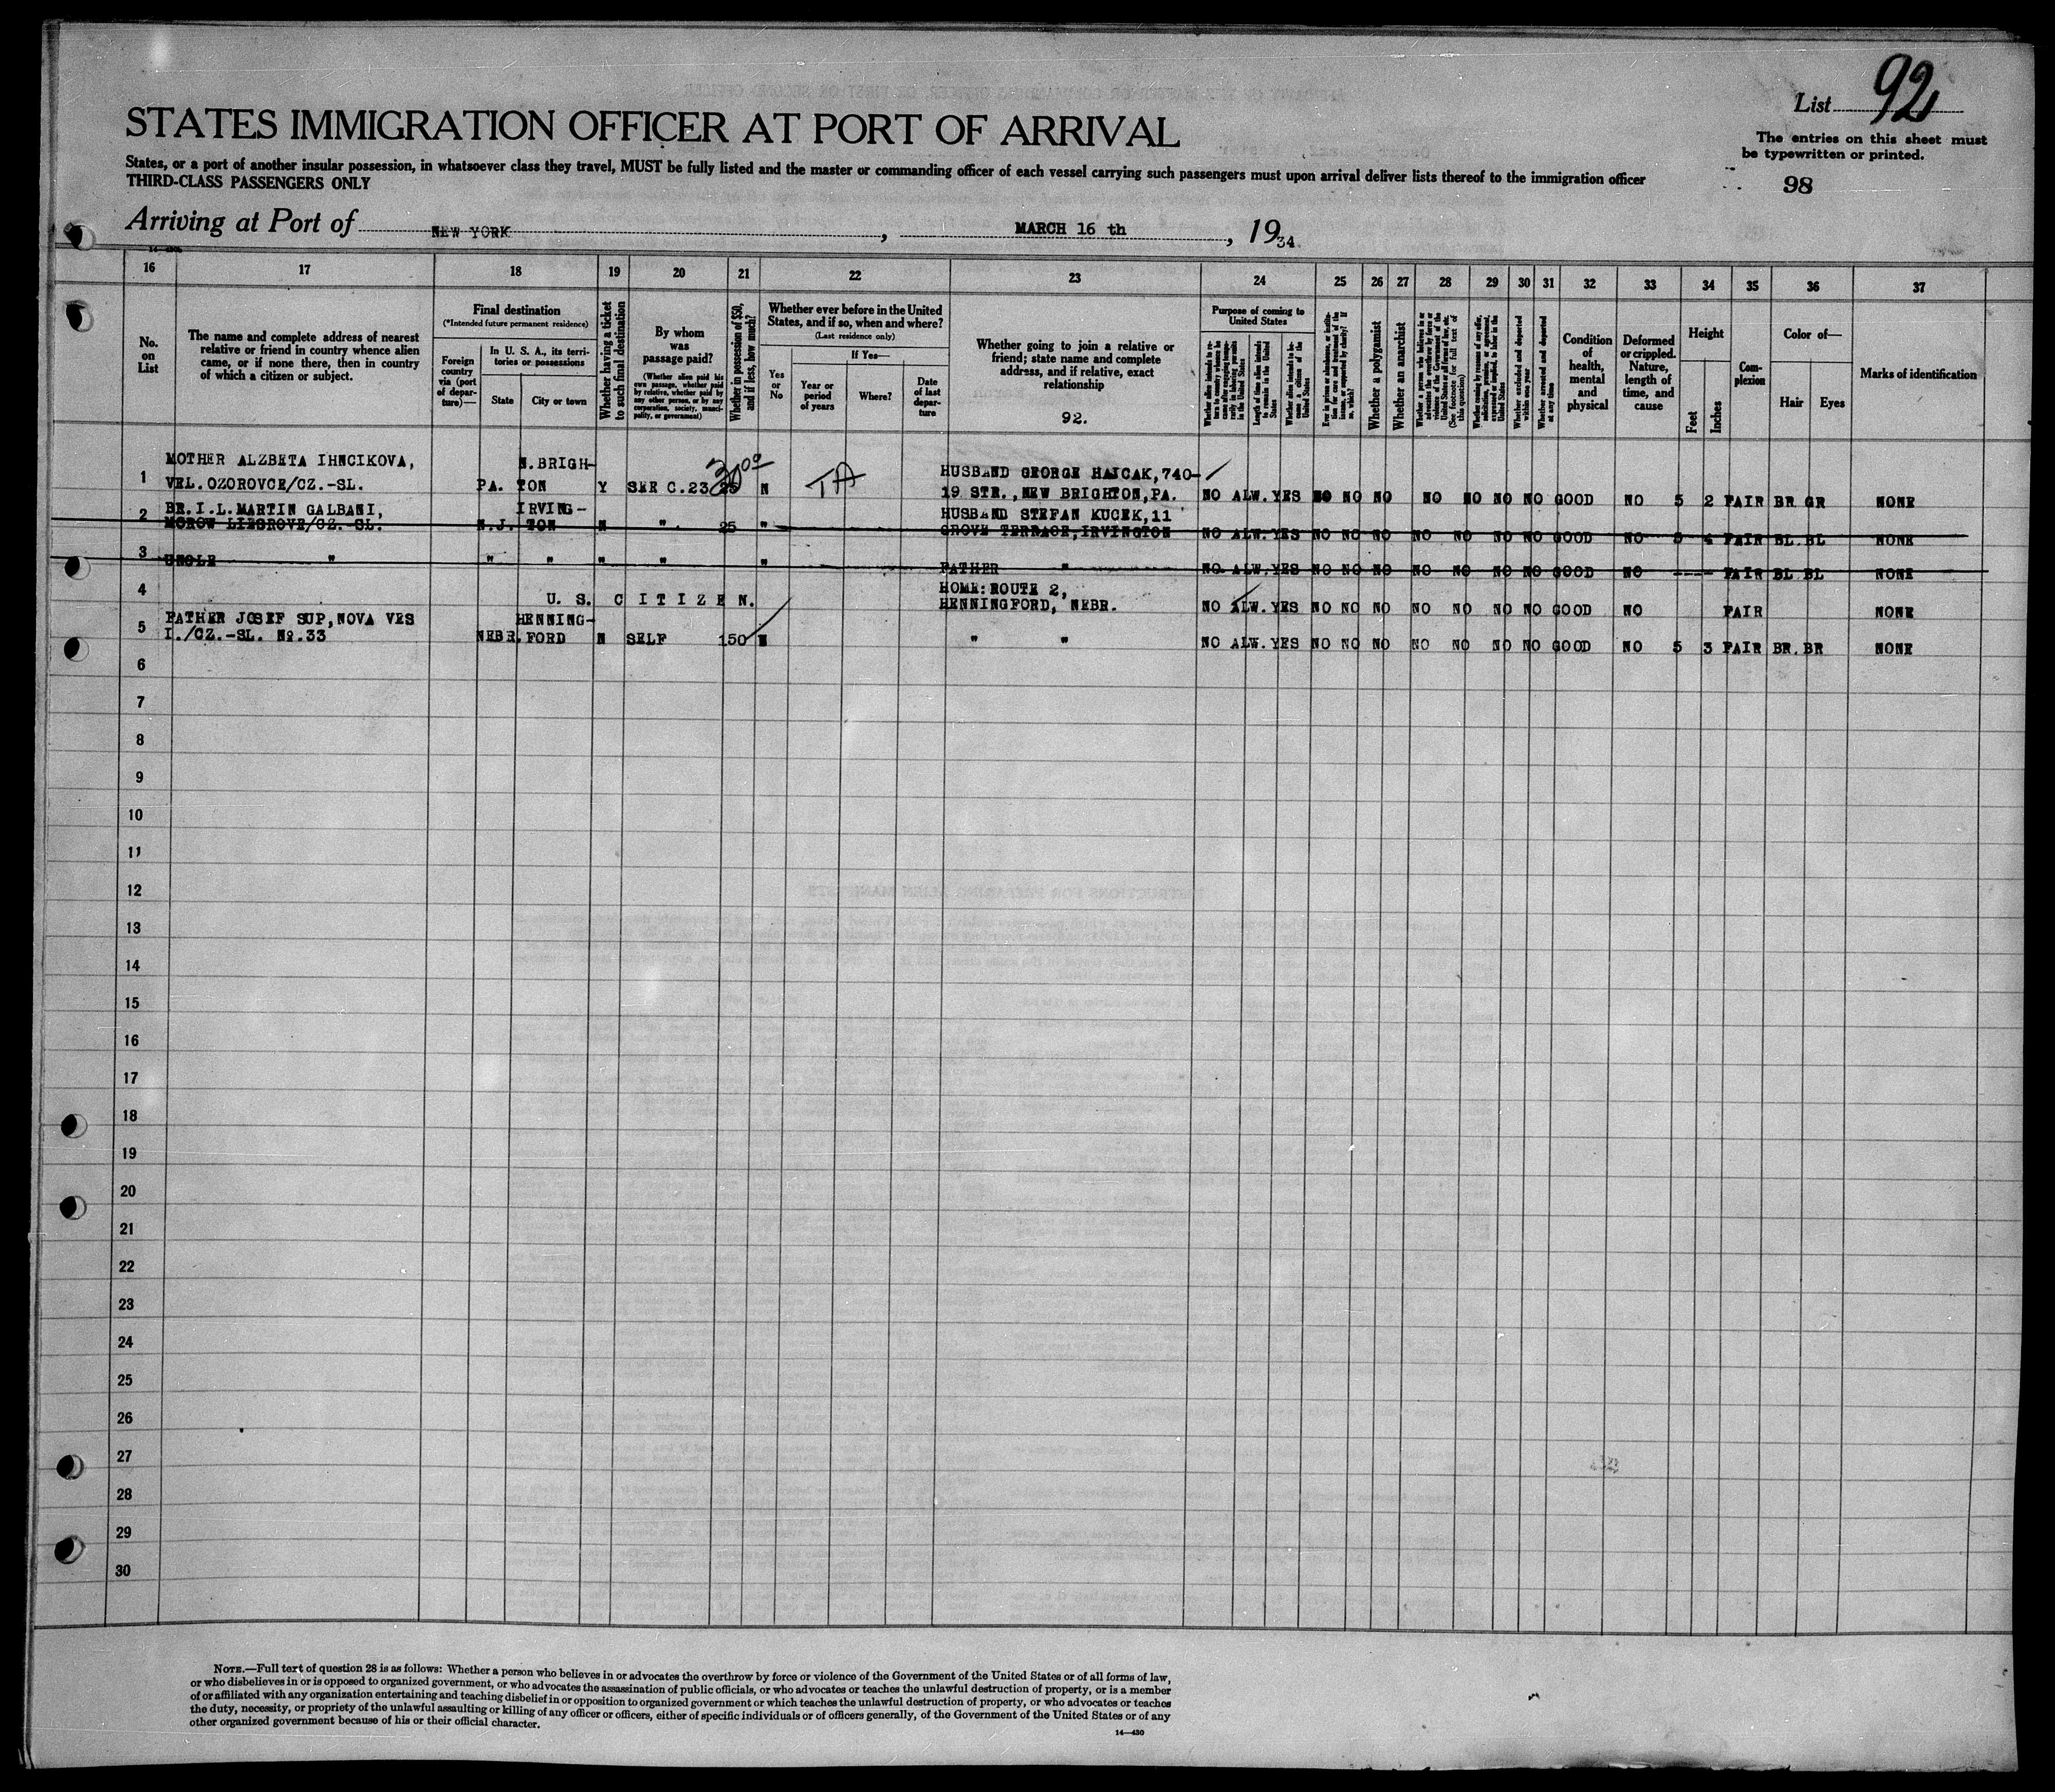 List 92
STATES IMMIGRATION OFFICER AT PORT OF ARRIVAL
The entries on this sheet must
be typewritten or printed.
States, or a port of another insular possession, in whatsoever class they travel, MUST be fully listed and the master or commanding officer of each vessel carrying such passengers must upon arrival deliver lists thereof to the immigration officer
THIRD-CLASS PASSENGERS ONLY
98
Arriving at Port of NEW YORK, MARCH 16 th, 1934
16 17 18 19 20 21 22 23 24 25 26 27 28 29 30 31 32 33 34 35 36 37
No.
on
List
The name and complete address of nearest
relative or friend in country whence alien
came, or if none there, then in country
of which a citizen or subject.
Final destination
(*Intended future permanent residence)
Foreign
country
via (port
of depar-
ture)—
In U. S. A., its terri-
tories or possessions
State
City or town
Whether having a ticket
to such final destination
By whom
was
passage paid?
(Whether alien paid his
own passage, whether paid
by relative, whether paid by
any other person, or by any
corporation, society, munici-
pality, or government)
Whether in possession of $50,
and if less, how much?
Whether ever before in the United
States, and if so, when and where?
(Last residence only)
Yes
or
No
If Yes—
Year or
period
of years
Where?
Date
of last
depar-
ture
Whether going to join a relative or
friend; state name and complete
address, and if relative, exact
relationship
92.
Purpose of coming to
United States
Length of time alien intends
to remain in the United
States
Whether alien intends to be-
come a citizen of the
United States
Whether a polygamist
Whether an anarchist
Whether excluded and deported
within one year
Whether arrested and deported
at any time
Condition
of
health,
mental
and
physical
Deformed
or crippled.
Nature,
length of
time, and
cause
Height
Feet
Inches
Com-
plexion
Color of—
Hair
Eyes
Marks of identification
1 MOTHER ALZBETA IHNCIKOVA, N.BRIGH- 30 00 TA HUSBAND GEORGE HAJCAK,740-
VEL.OZOROVCE/CZ.-SL. PA. TON Y SER C.23 25 N 19 STR.,NEW BRIGHTON,PA. NO ALW. YES NO NO NO NO NO NO NO GOOD NO 5 2 FAIR BR GR NONE
2 BR.I.L.MARTIN GALBANI, IRVING- HUSBAND STEFAN KUCEK,11
/CZ.-SL. N.J. TON N " 25 " GROVE TERRACE,IRVINGTON NO ALW. YES NO NO NO NO NO NO NO GOOD NO 5 4 FAIR BL.BL NONE
3 UNCLE " " " " " " FATHER " NO ALW. YES NO NO NO NO NO NO NO GOOD NO ---- FAIR BL BL NONE
4 U. S. C I T I Z E N. HOME:ROUTE 2,
HENNINGFORD, NEBR. NO ALW. YES NO NO NO NO NO NO NO GOOD NO FAIR NONE
5 FATHER JOSEF SUP,NOVA VES HENNING-
I./CZ.-SL. No.33 NEBR. FORD N SELF 150 N " " NO ALW. YES NO NO NO NO NO NO NO GOOD NO 5 3 FAIR BR.BR NONE
6
7
8
9
10
11
12
13
14
15
16
17
18
19
20
21
22
23
24
25
26
27
28
29
30
NOTE.—Full text of question 28 is as follows: Whether a person who believes in or advocates the overthrow by force or violence of the Government of the United States or of all forms of law,
or who disbelieves in or is opposed to organized government, or who advocates the assassination of public officials, or who advocates or teaches the unlawful destruction of property, or is a member
of or affiliated with any organization entertaining and teaching disbelief in or opposition to organized government or which teaches the unlawful destruction of property, or who advocates or teaches
the duty, necessity, or propriety of the unlawful assaulting or killing of any officer or officers, either of specific individuals or of officers generally, of the Government of the United States or of any
other organized government because of his or their official character.
14—430